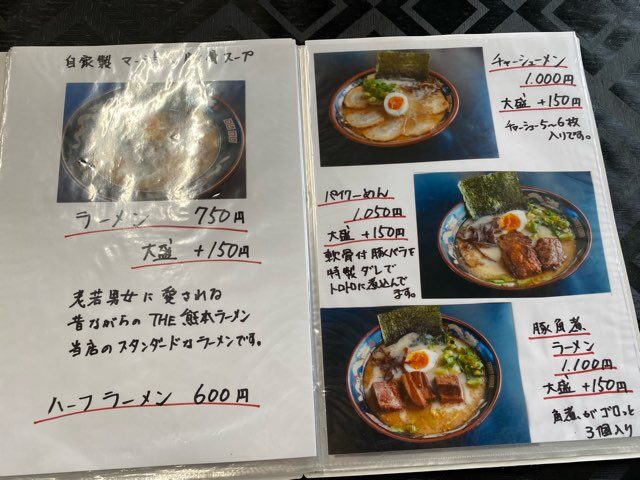 自家製 マー スープ
ラーメン 750円
大盛 +150円
老若男女に愛されな
昔ながらの THE 熊本ラーメン
当店のスタンダードなラーメンです。
ハーフラーメン 600円
チャーシューメン
1.000円
大盛 +150円
チャーシュー5〜6枚
入りです。
パイクーめん
1.050円
大盛 +150円
軟骨付豚バラを
特製ダレで
トロトロに煮込んで
ます。
豚角煮
ラーメン
1.100円
大盛 +150円
角煮が ゴロっと
3個入り